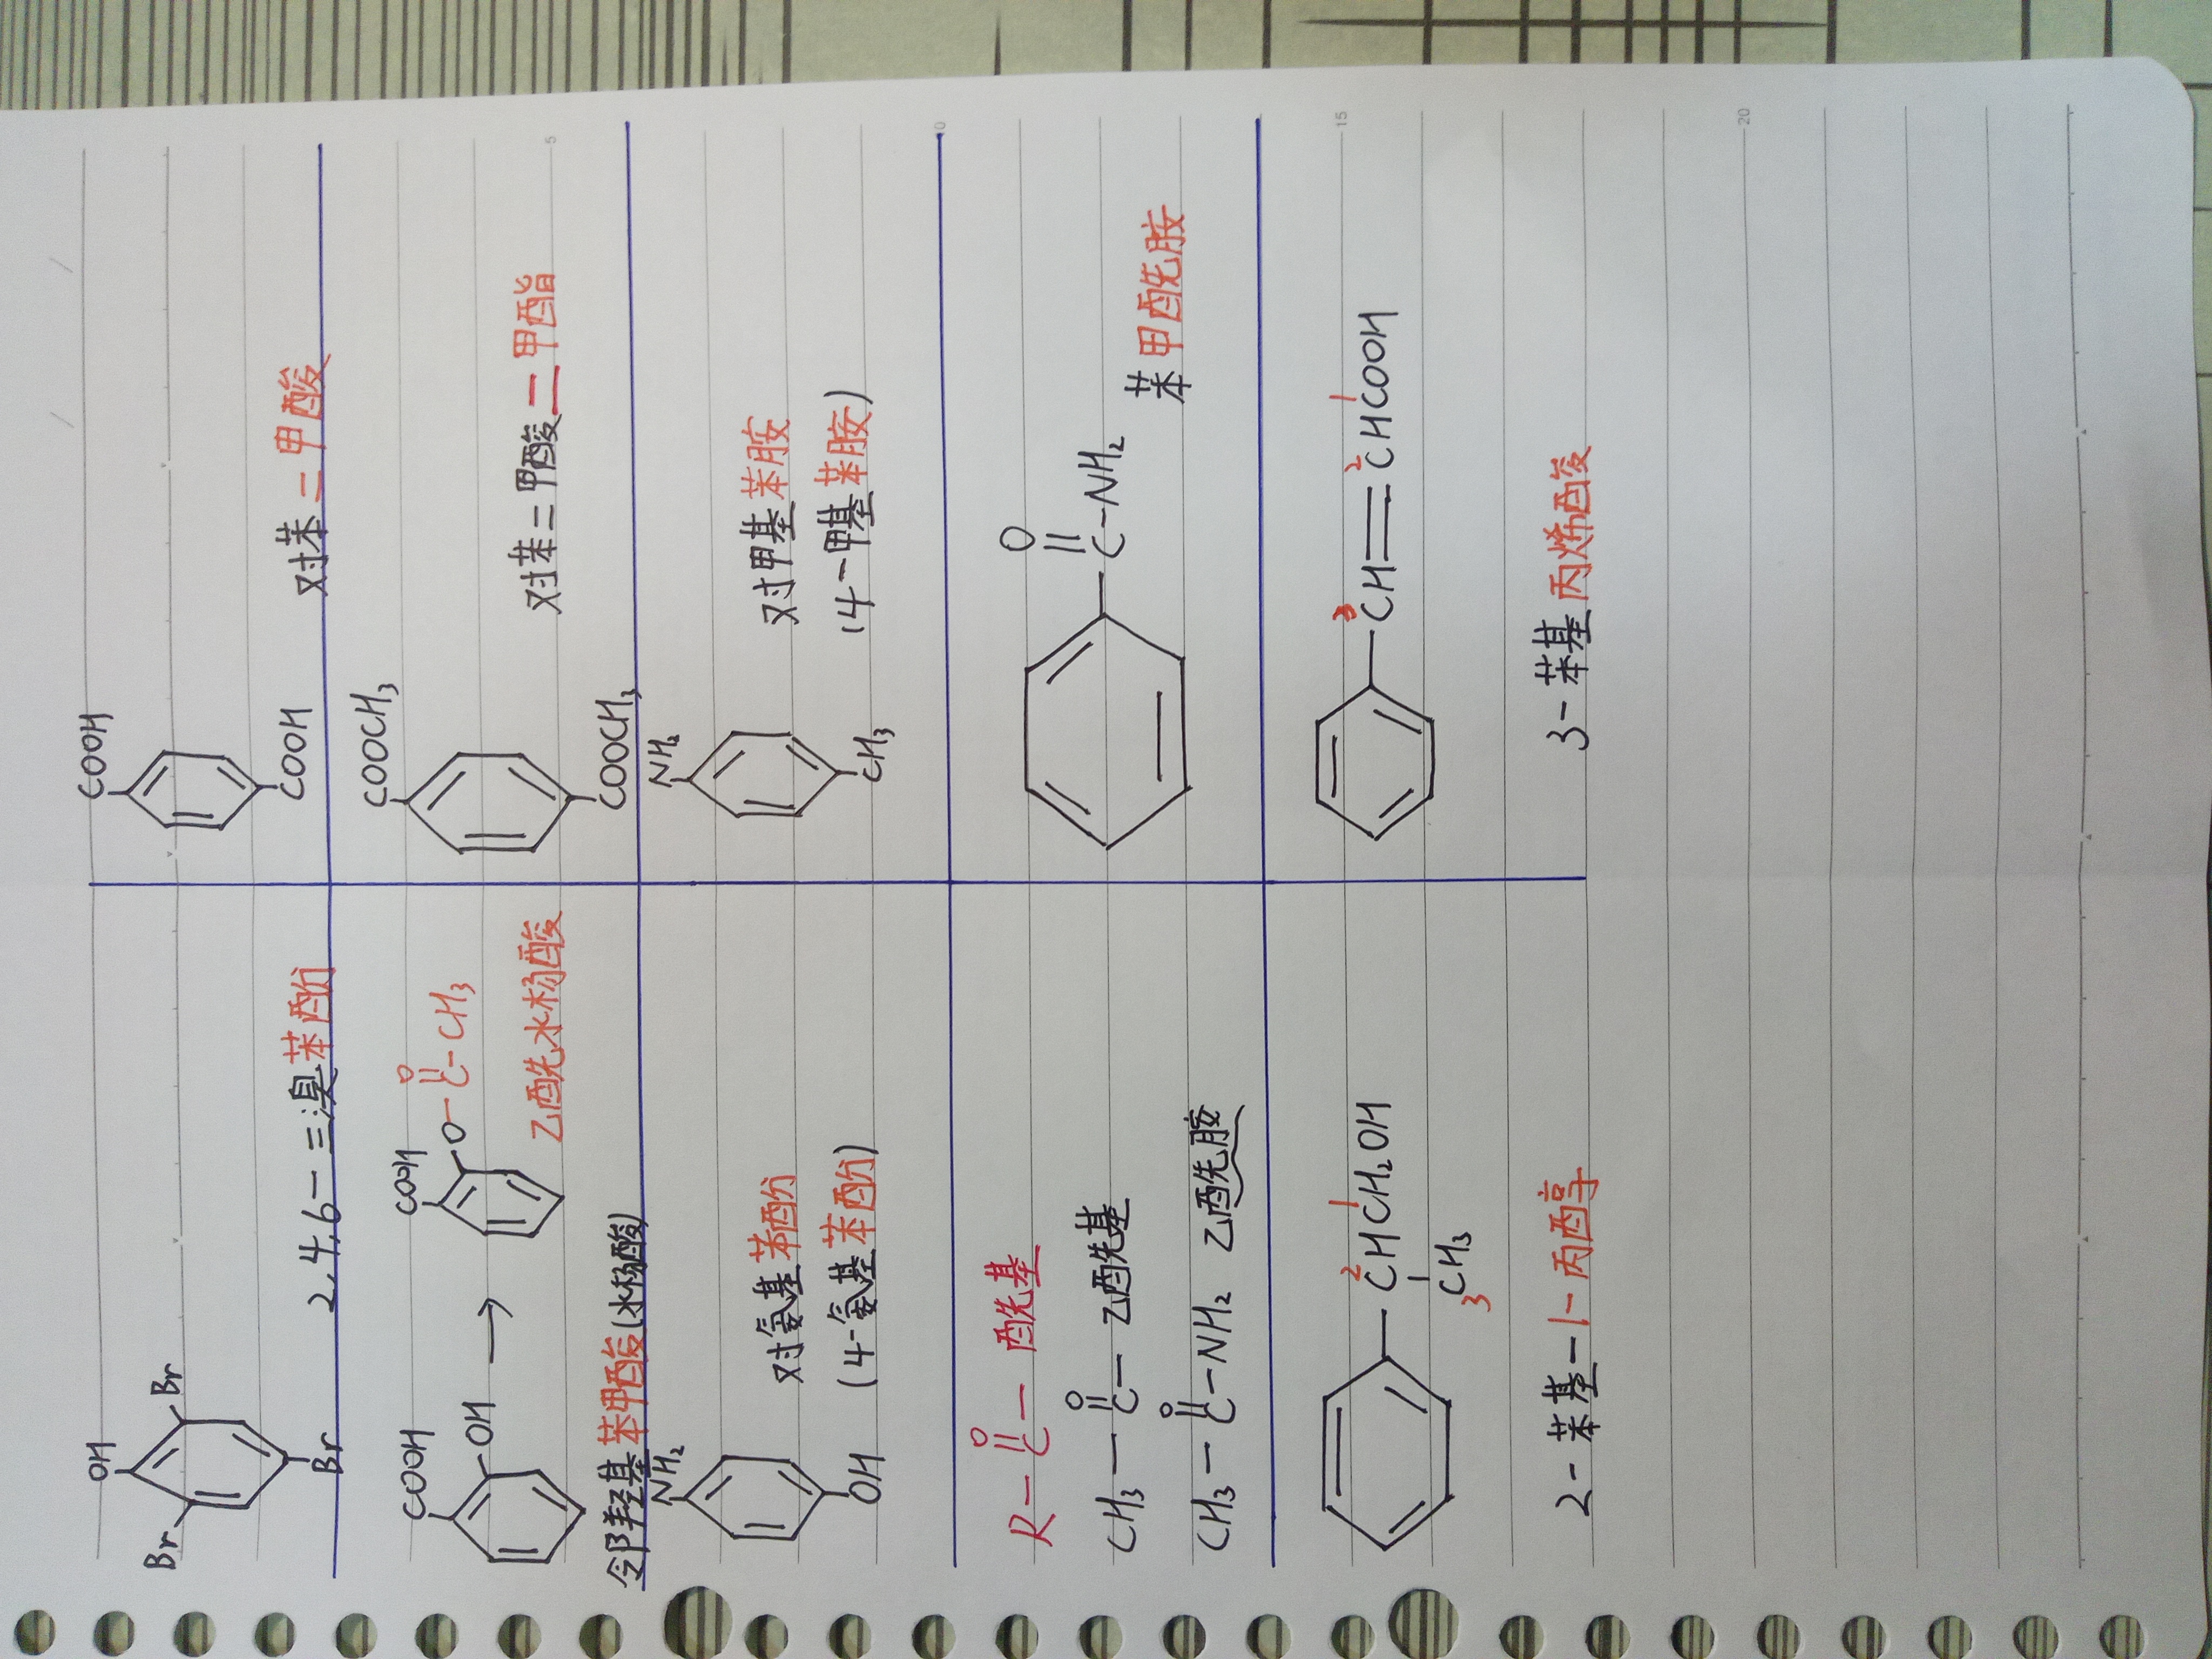 OH
Br
Br
Br
2,4,6-三溴苯酚
COOH
COOH
对苯二甲酸
COOH
OH
→
COOH
O-C-CH₃
O
乙酰水杨酸
邻羟基苯甲酸(水杨酸)
COOCH₃
COOCH₃
对苯二甲酸二甲酯
NH₂
OH
对氨基苯酚
(4-氨基苯酚)
NH₂
CH₃
对甲基苯胺
(4-甲基苯胺)
O
R-C- 酰基
O
CH₃-C- 乙酰基
O
CH₃-C-NH₂ 乙酰胺
O
C-NH₂
苯甲酰胺
2 1
CHCH₂OH
3 CH₃
2-苯基-1-丙醇
3 2 1
CH=CHCOOH
3-苯基丙烯酸
5
10
15
20